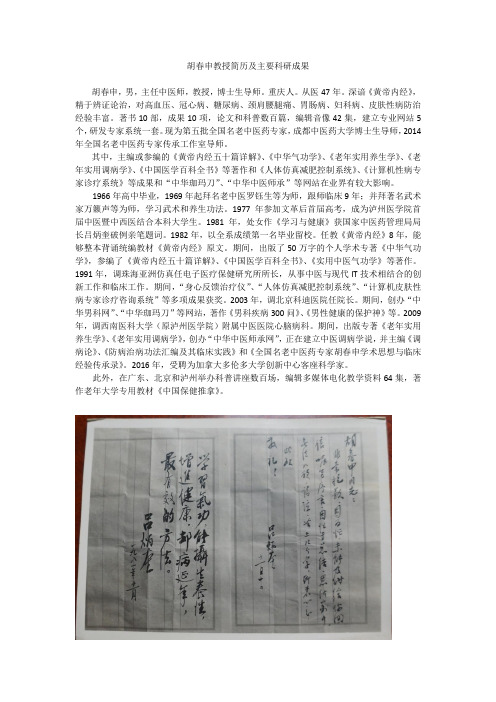 胡春申教授简历及主要科研成果
胡春申，男，主任中医师，教授，博士生导师。重庆人。从医 47 年。深谙《黄帝内经》，
精于辨证论治，对高血压、冠心病、糖尿病、颈肩腰腿痛、胃肠病、妇科病、皮肤性病防治
经验丰富。著书 10 部，成果 10 项，论文和科普数百篇，编辑音像 42 集，建立专业网站 5
个，研发专家系统一套。现为第五批全国名老中医药专家，成都中医药大学博士生导师，2014
年全国名老中医药专家传承工作室导师。
其中，主编或参编的《黄帝内经五十篇详解》、《中华气功学》、《老年实用养生学》、《老
年实用调病学》、《中国医学百科全书》等著作和《人体仿真减肥控制系统》、《计算机性病专
家诊疗系统》等成果和“中华珈玛刀”、“中华中医师承”等网站在业界有较大影响。
1966 年高中毕业，1969 年起拜名老中医罗钰生等为师，跟师临床 9 年；并拜著名武术
家万籁声等为师，学习武术和养生功法。1977 年参加文革后首届高考，成为泸州医学院首
届中医暨中西医结合本科大学生。1981 年，处女作《学习与健康》获国家中医药管理局局
长吕炳奎破例亲笔题词。1982 年，以全系成绩第一名毕业留校。任教《黄帝内经》8 年，能
够整本背诵统编教材《黄帝内经》原文。期间，出版了 50 万字的个人学术专著《中华气功
学》，参编了《黄帝内经五十篇详解》、《中国医学百科全书》、《实用中医气功学》等著作。
1991 年，调珠海亚洲仿真任电子医疗保健研究所所长，从事中医与现代 IT 技术相结合的创
新工作和临床工作。期间，“身心反馈治疗仪”、“人体仿真减肥控制系统”、“计算机皮肤性
病专家诊疗咨询系统”等多项成果获奖。2003 年，调北京科迪医院任院长。期间，创办“中
华男科网”、“中华珈玛刀”等网站，著作《男科疾病 300 问》、《男性健康的保护神》等。2009
年，调西南医科大学（原泸州医学院）附属中医医院心脑病科。期间，出版专著《老年实用
养生学》、《老年实用调病学》，创办“中华中医师承网”，正在建立中医调病学说，并主编《调
病论》、《防病治病功法汇编及其临床实践》和《全国名老中医药专家胡春申学术思想与临床
经验传承录》。2016 年，受聘为加拿大多伦多大学创新中心客座科学家。
此外，在广东、北京和泸州举办科普讲座数百场，编辑多媒体电化教学资料 64 集，著
作老年大学专用教材《中国保健推拿》。
胡春申同志：
此致
敬礼！
学习气功，能摄生养性，
增进健康，却病延年，
最有效的方法。
吕炳奎